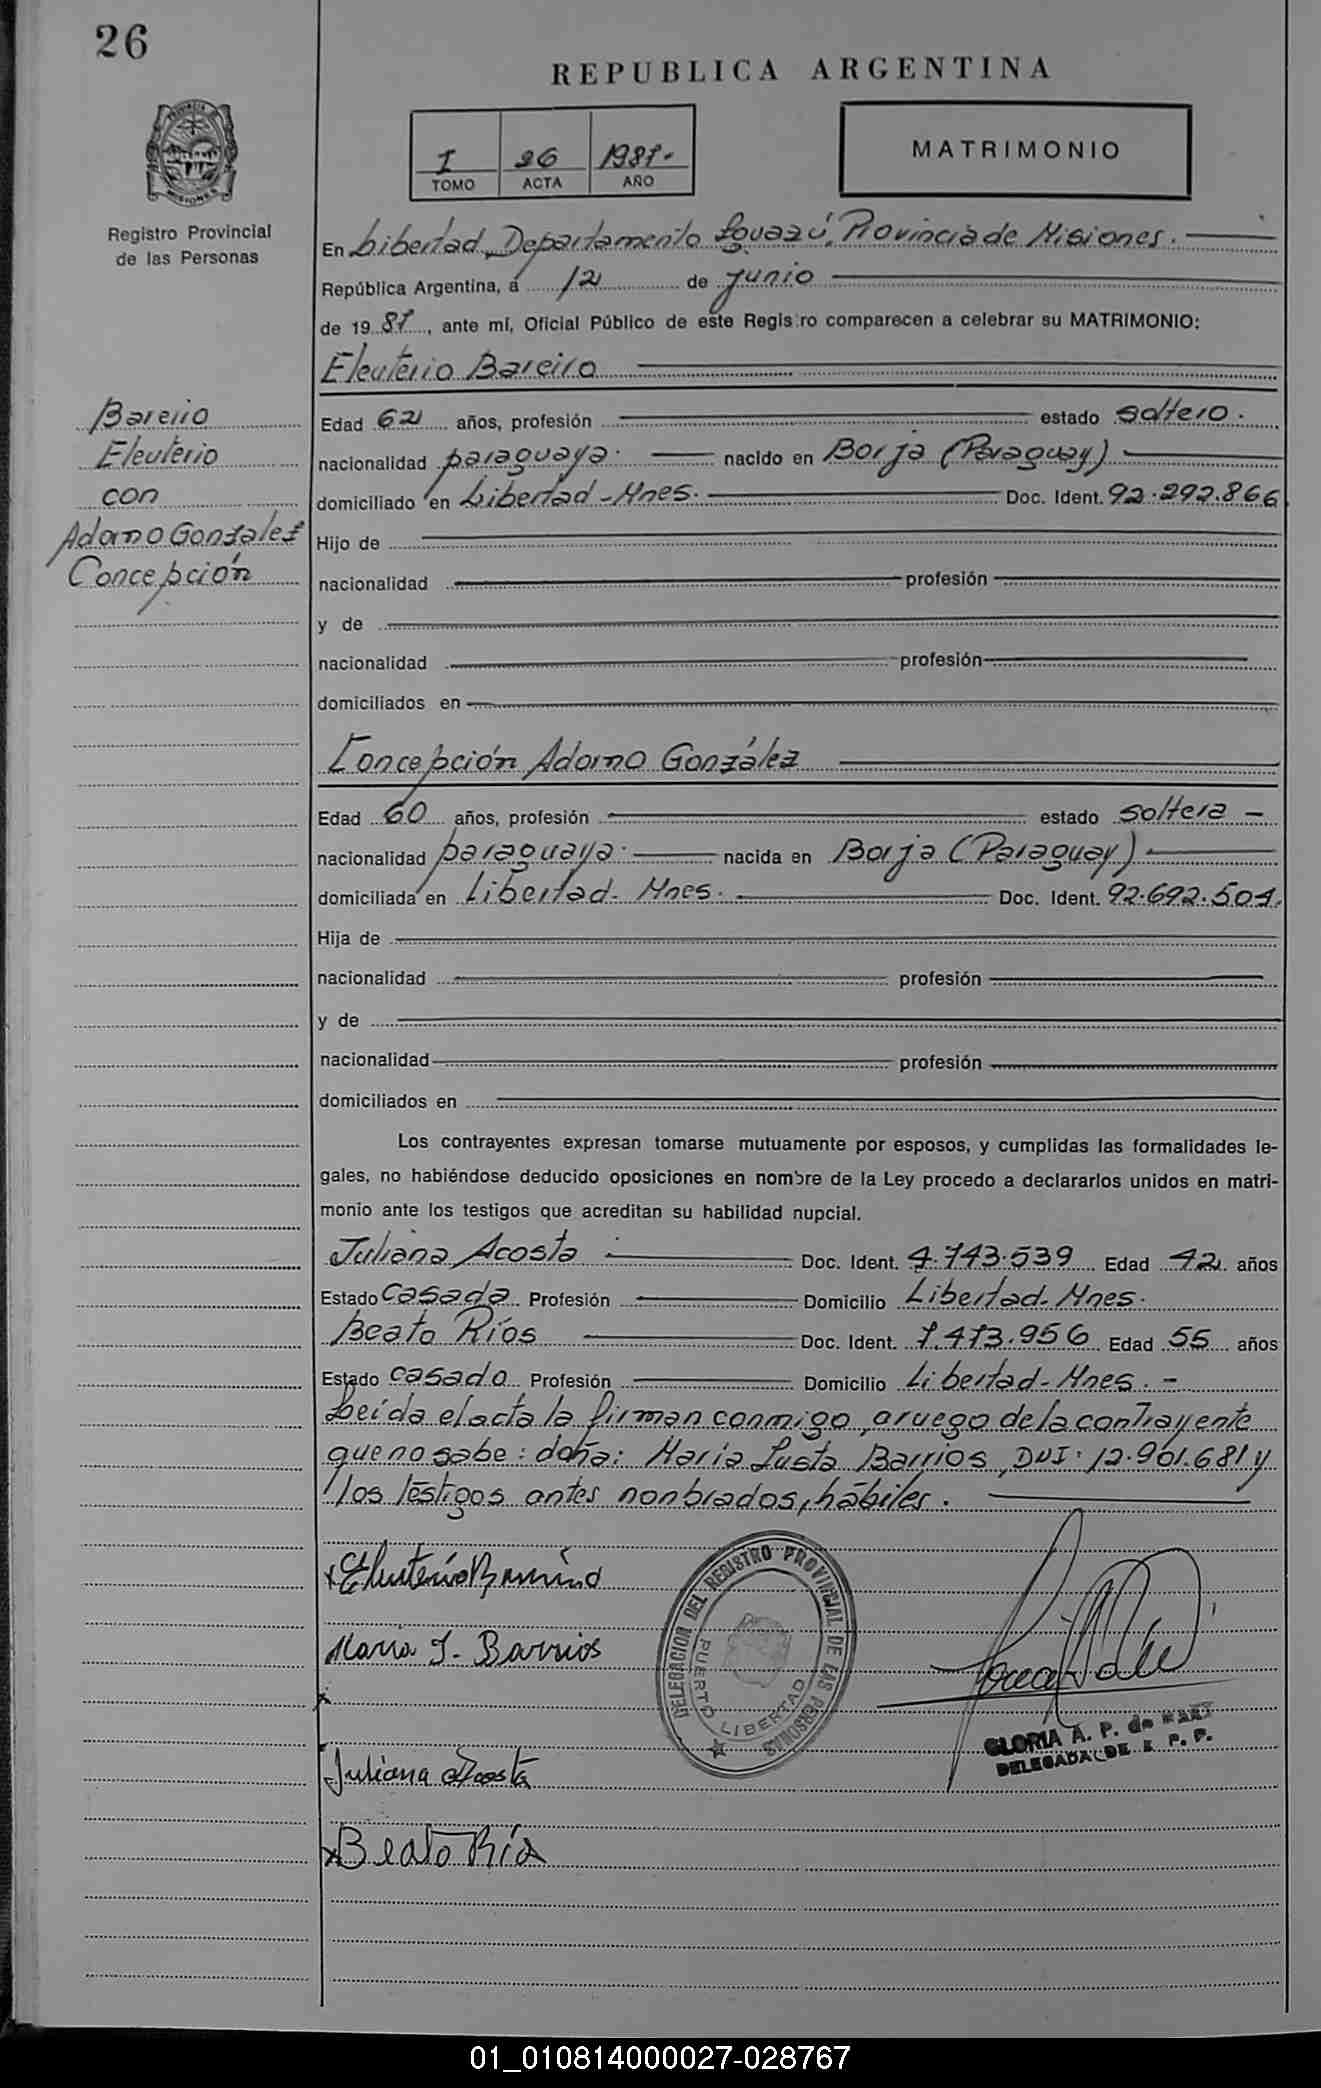 26
REPUBLICA ARGENTINA
I 26 1987.-
TOMO ACTA AÑO
MATRIMONIO
PROVINCIA
MISIONES
Registro Provincial
de las Personas
En Libertad, Departamento Iguazú, Provincia de Misiones.
República Argentina, a 12 de junio
de 1987, ante mí, Oficial Público de este Registro comparecen a celebrar su MATRIMONIO:
Eleuterio Bareiro
Bareiro
Eleuterio
con
Adorno Gonzalez
Concepción
Edad 62 años, profesión estado soltero.
nacionalidad paraguaya. nacido en Borja (Paraguay)
domiciliado en Libertad-Mnes. Doc. Ident. 92.292.866
Hijo de
nacionalidad profesión
y de
nacionalidad profesión
domiciliados en
Concepción Adorno González
Edad 60 años, profesión estado soltera -
nacionalidad paraguaya. nacida en Borja (Paraguay)
domiciliada en Libertad- Mnes. Doc. Ident. 92.692.504.
Hija de
nacionalidad profesión
y de
nacionalidad profesión
domiciliados en
Los contrayentes expresan tomarse mutuamente por esposos, y cumplidas las formalidades le-
gales, no habiéndose deducido oposiciones en nombre de la Ley procedo a declararlos unidos en matri-
monio ante los testigos que acreditan su habilidad nupcial.
Juliana Acosta Doc. Ident. 4.743.539 Edad 42 años
Estado casada Profesión Domicilio Libertad- Mnes.
Beato Ríos Doc. Ident. 7.473.956 Edad 55 años
Estado casado Profesión Domicilio Libertad-Mnes. -
Leída el acta la firman conmigo, a ruego de la contrayente
que no sabe: doña: María Justa Barrios, DNI: 12.961.681 y
los testigos antes nonbrados, hábiles.
Eleuterio Bareiro
Maria J. Barrios
Juliana Acosta
Beato Ríos
DELEGACION DEL REGISTRO PROVINCIAL DE LAS PERSONAS
PUERTO LIBERTAD
GLORIA A. P. de
DELEGADA DE R. P. P.
01_010814000027-028767